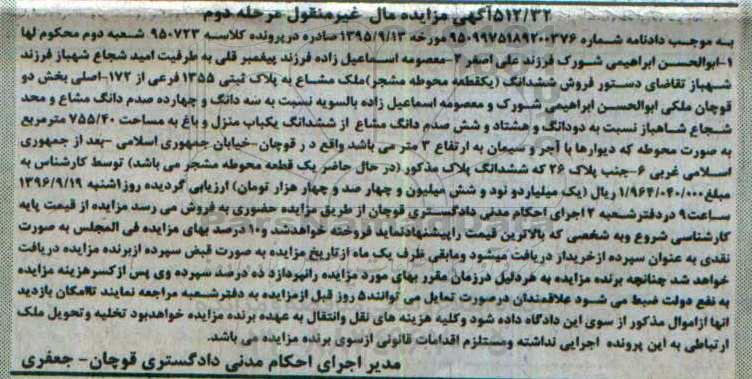 ۵۱۲/۳۲آگهی مزایده مال غیرمنقول مرحله دوم
به موجب دادنامه شماره ۹۵۰۹۹۷۵۱۸۹۲۰۰۳۷۶ مورخه ۱۳۹۵/۹/۱۳ صادره درپرونده کلاسه ۹۵۰۷۲۳ شعبه دوم محکوم لها
۱-ابوالحسن ابراهیمی شورک فرزند علی اصغر ۲-معصومه اسماعیل زاده فرزند پیغمبر قلی به طرفیت امید شجاع شهباز فرزند
شهباز تقاضای دستور فروش ششدانگ (یکقطعه محوطه مشجر)ملک مشاع به پلاک ثبتی ۱۳۵۵ فرعی از ۱۷۲-اصلی بخش دو
قوچان ملکی ابوالحسن ابراهیمی شورک و معصومه اسماعیل زاده بالسویه نسبت به سه دانگ و چهارده صدم دانگ مشاع و محمد
شجاع شاهباز نسبت به دودانگ و هشتاد و شش صدم دانگ مشاع از ششدانگ یکباب منزل و باغ به مساحت ۷۵۵/۴۰ مترمربع
به صورت محوطه که دیوارها با آجر و سیمان به ارتفاع ۳ متر می باشد واقع د ر قوچان-خیابان جمهوری اسلامی -بعد از جمهوری
اسلامی غربی ۶-جنب پلاک ۲۶ که ششدانگ پلاک مذکور (در حال حاضر یک قطعه محوطه مشجر می باشد) توسط کارشناس به
مبلغ۱/۹۶۴/۰۴۰/۰۰۰ ریال (یک میلیاردو نود و شش میلیون و چهار صد و چهار هزار تومان) ارزیابی گردیده روز۱شنبه ۱۳۹۶/۹/۱۹
ساعت۹ دردفترشعبه ۲ اجرای احکام مدنی دادگستری قوچان از طریق مزایده حضوری به فروش می رسد مزایده از قیمت پایه
کارشناسی شروع وبه شخصی که بالاترین قیمت راپیشنهادنماید فروخته خواهدشد و۱۰ درصد بهای مزایده فی المجلس به صورت
نقدی به عنوان سپرده ازخریدار دریافت میشود ومابقی ظرف یک ماه ازتاریخ مزایده به صورت قبض سپرده ازبرنده مزایده دریافت
خواهد شد چنانچه برنده مزایده به هردلیل درزمان مقرر بهای مورد مزایده رانپردازد ده درصد سپرده وی پس ازکسرهزینه مزایده
به نفع دولت ضبط می شود علاقمندان درصورت تمایل می توانند۵ روز قبل ازمزایده به دفترشعبه مراجعه نمایند تاامکان بازدید
آنها ازاموال مذکور از سوی این دادگاه داده شود وکلیه هزینه های نقل وانتقال به عهده برنده مزایده خواهدبود تخلیه وتحویل ملک
ارتباطی به این پرونده اجرایی نداشته ومستلزم اقدامات قانونی ازسوی برنده مزایده می باشد.
مدیر اجرای احکام مدنی دادگستری قوچان- جعفری